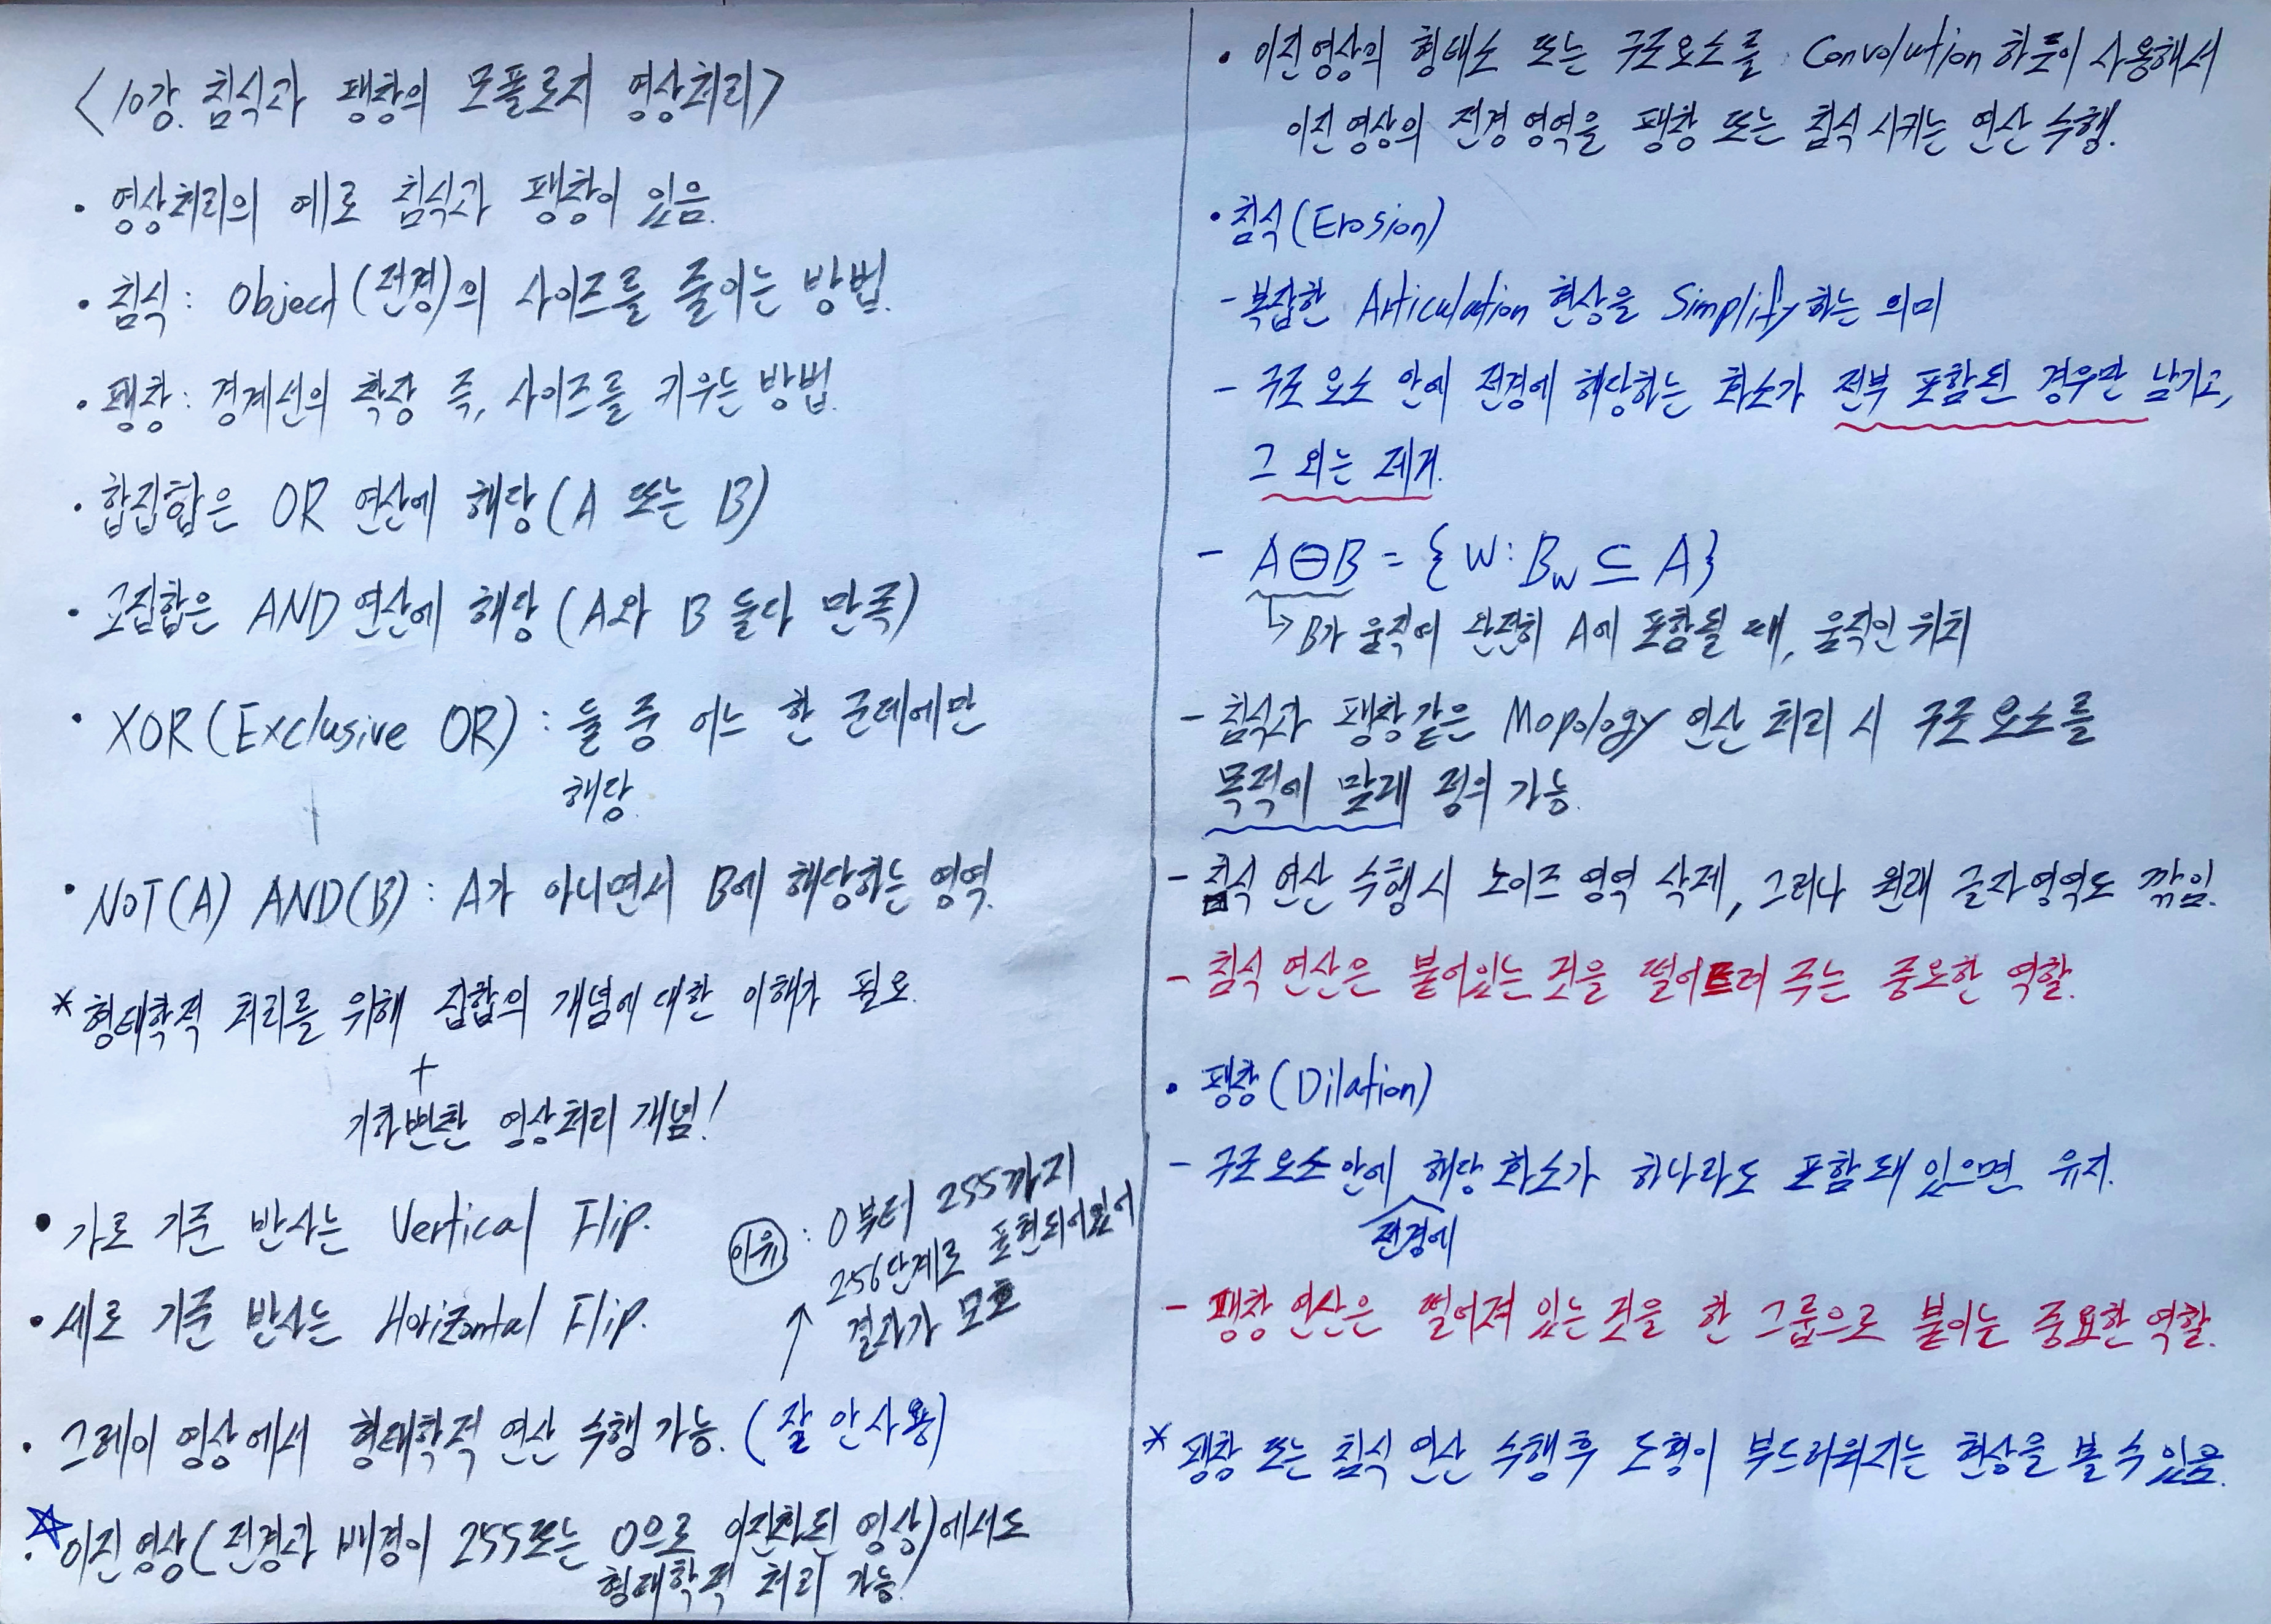 <10강. 침식과 팽창의 모폴로지 영상처리>
• 영상처리의 예로 침식과 팽창이 있음.
• 침식: Object(전경)의 사이즈를 줄이는 방법.
• 팽창: 경계선의 확장 즉, 사이즈를 키우는 방법.
• 합집합은 OR 연산에 해당(A 또는 B)
• 교집합은 AND 연산에 해당(A와 B 둘다 만족)
• XOR(Exclusive OR): 둘 중 어느 한 군데에만
해당.
• NOT(A) AND(B): A가 아니면서 B에 해당하는 영역.
* 형태학적 처리를 위해 집합의 개념에 대한 이해가 필요.
+
기하변환 영상처리 개념!
• 가로 기준 반사는 Vertical Flip.
• 세로 기준 반사는 Horizontal Flip.
이유: 0부터 255까지
256단계로 표현되어있어
결과가 모호
↑
• 그레이 영상에서 형태학적 연산 수행 가능. (잘 안사용)
☆
• 이진 영상(전경과 배경이 255또는 0으로 이진화된 영상)에서도
형태학적 처리 가능!
• 이진영상의 형태소 또는 구조요소를 Convolution 하듯이 사용해서
이진영상의 전경 영역을 팽창 또는 침식 시키는 연산 수행.
• 침식(Erosion)
- 복잡한 Articulation 현상을 Simplify하는 의미
- 구조 요소 안에 전경에 해당하는 화소가 전부 포함된 경우만 남기고,
그 외는 제거.
- A⊖B = {w: Bw ⊆ A}
↳ B가 움직여 완전히 A에 포함될 때, 움직인 위치
- 침식과 팽창같은 Mopology 연산 처리 시 구조 요소를
목적에 맞게 정의 가능.
- 침식 연산 수행시 노이즈 영역 삭제, 그러나 원래 글자영역도 깎임.
- 침식 연산은 붙어있는 것을 떨어트려 주는 중요한 역할.
• 팽창(Dilation)
- 구조 요소 안에 해당 화소가 하나라도 포함돼 있으면 유지.
전경에
- 팽창 연산은 떨어져 있는 것을 한 그룹으로 붙이는 중요한 역할.
* 팽창 또는 침식 연산 수행 후 도형이 부드러워지는 현상을 볼 수 있음.